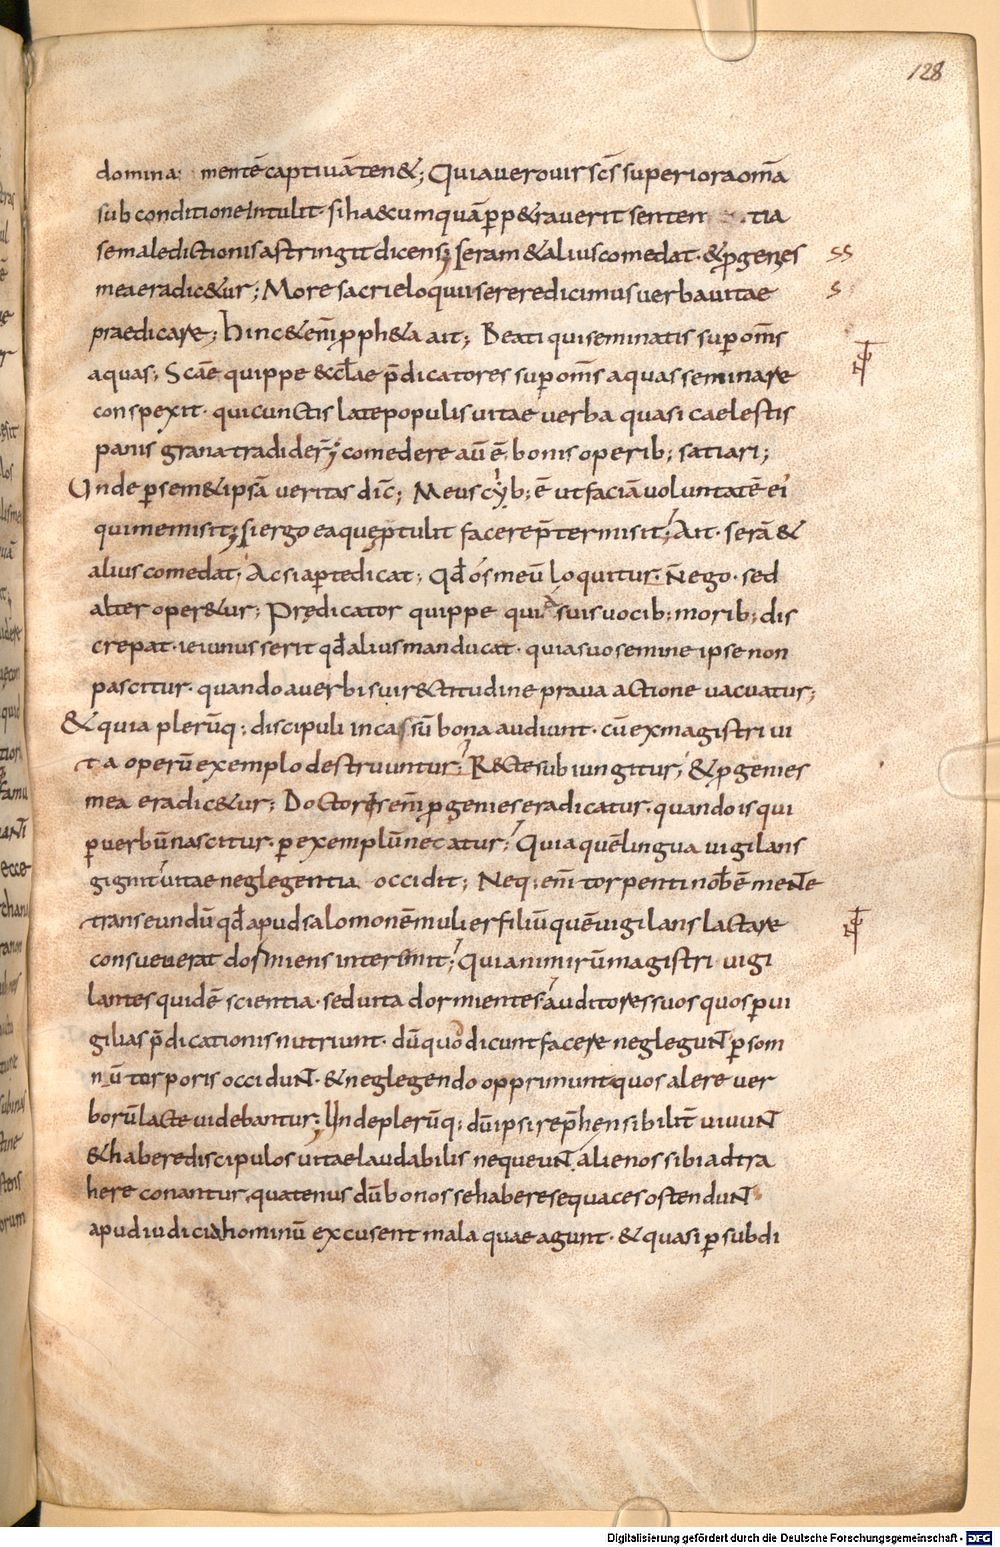 128
domina: mentē captiuāten&; Quia uero uir scs superiora omīa
sub conditione intulit· si ha&cumquā p̄p&rauerit senten tia
se maledictionis astringit dicens; seram & alius comedat· & p̄genies
ss
mea eradic&ur; More sacri eloquii serere dicimus uerba uitae
s
praedicare; hinc & em̄ p̄ph&a ait; Beati qui seminatis sup om̄s
aquas; Scāe quippe ęcclae p̄dicatores sup om̄s aquas seminare
conspexit· qui cunctis late populis uitae uerba quasi caelestis
panis grana tradider̄; comedere aū ē· bonis operib; satiari;
Unde p sem&ipsā ueritas dic̄; Meus cyb; ē ut faciā uoluntatē ei
qui me misit; si ergo ea quę p̄tulit facere p̄termisit; Ait· serā &
alius comedat; Ac si apte dicat; Qd̄ os meū loquitur· n̄ ego· sed
alter oper&ur; Predicator quippe qui suis uocib; morib; dis
crepat· ieiunus serit qd̄ alius manducat· quia suo semine ipse non
pascitur· quando a uerbi sui r&titudine praua actione uacuatur;
& quia plerūq; discipuli incassū bona audiunt· cū ex magistri ui
ta operū exemplo destruuntur; R&te subiungitur; & p̄genies
mea eradic&ur; Doctoris em̄ p̄genies eradicatur· quando is qui
p uerbū nascitur· p exemplū necatur; Quia quē lingua uigilans
gignit uitae neglegentia occidit; Neq; em̄ torpenti nob̄ ē mente
transeundū qd̄ apud salomonē mulier filiū quē uigilans lactare
consueuerat dormiens interimit; Quia nimirū magistri uigi
lantes quidē scientia· sed uita dormientes· auditores suos quos p ui
gilias p̄dicationis nutriunt· dū quod dicunt facere neglegunt p som
nū torporis occidunt· & neglegendo opprimunt quos alere uer
borū lacte uidebantur; Unde plerūq; dū ipsi rep̄hensibilit̄ uiuunt
& habere discipulos uitae laudabilis nequeunt· alienos sibi adtra
here conantur, quatenus dū bonos se habere sequaces ostendunt
apud iudicia hominū excusent mala quae agunt· & quasi p subdi
Digitalisierung gefördert durch die Deutsche Forschungsgemeinschaft - DFG